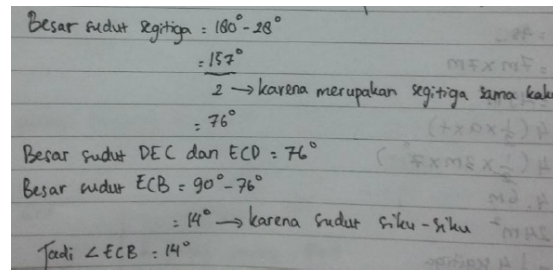 Besar sudut segitiga = 180° - 28°
= 157°
2 → karena merupakan segitiga sama kaki
= 76°
Besar sudut DEC dan ECD = 76°
Besar sudut ECB = 90° - 76°
= 14° → karena sudut siku-siku
Jadi ∠ECB = 14°